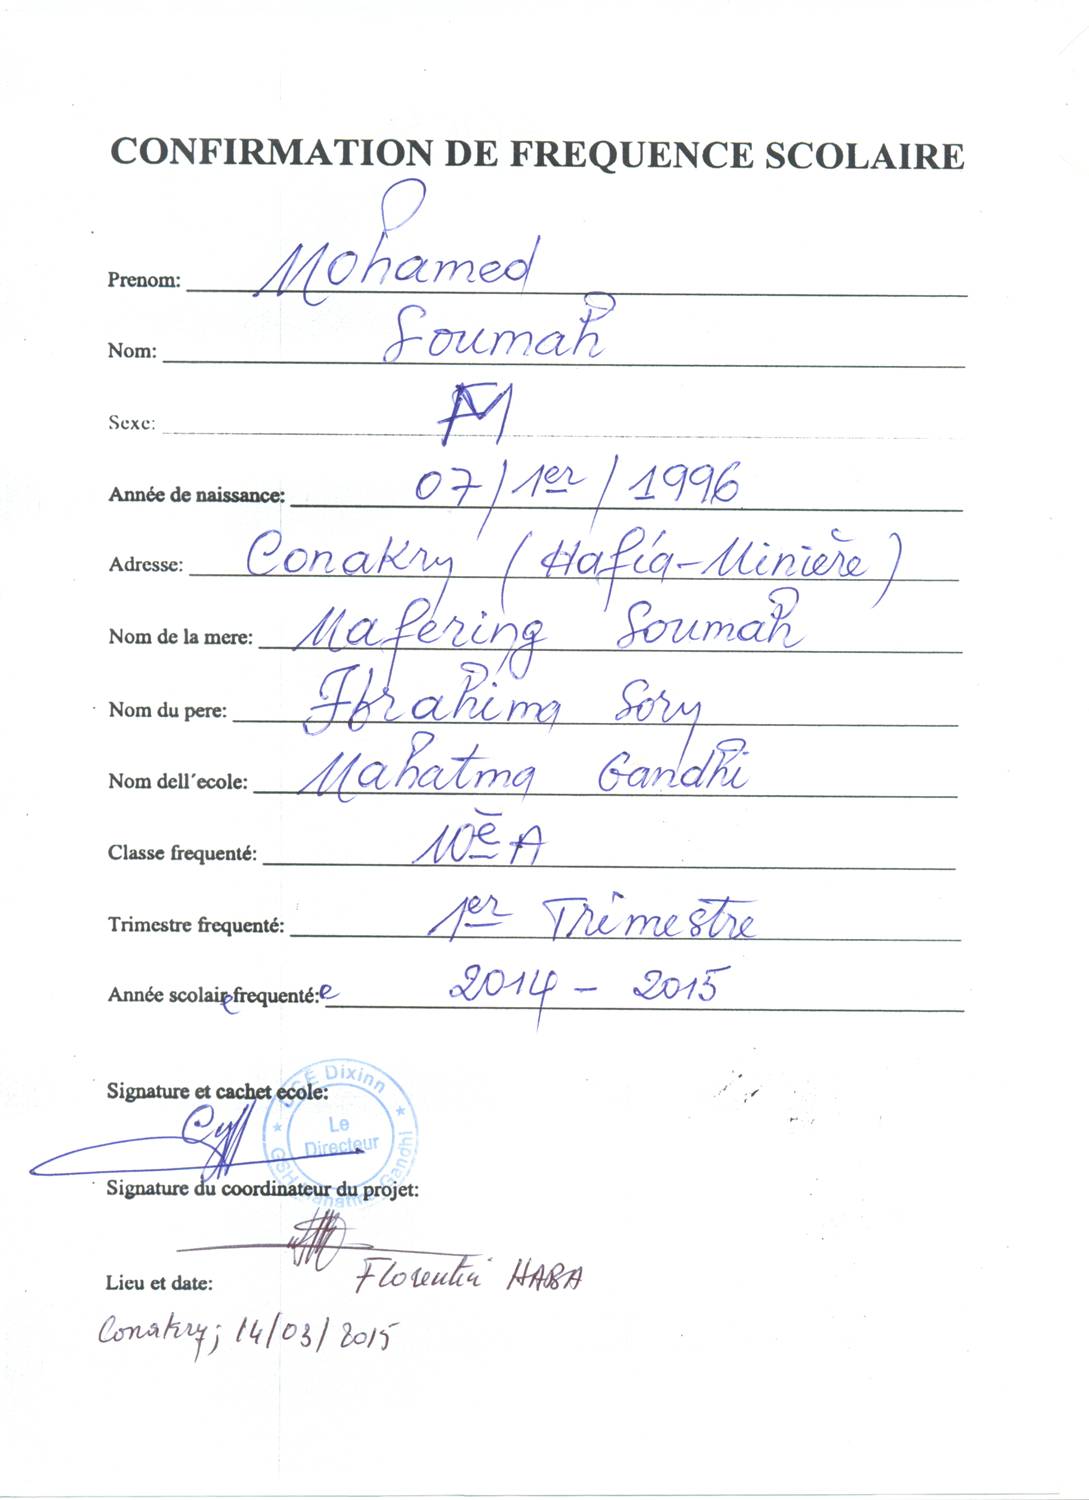 CONFIRMATION DE FREQUENCE SCOLAIRE
Prenom: Mohamed
Nom: Soumah
Sexe: M
Année de naissance: 07/1er/1996
Adresse: Conakry (Hafia-Minière)
Nom de la mere: Mafering Soumah
Nom du pere: Ibrahima Sory
Nom dell´ecole: Mahatma Gandhi
Classe frequenté: 10è A
Trimestre frequenté: 1er Trimestre
Année scolaire frequenté:e 2014 - 2015
Signature et cachet ecole:
DCE Dixinn
Le
Directeur
GSH Mahatma Gandhi
Signature du coordinateur du projet:
Florentin HABA
Lieu et date:
Conakry; 14/03/2015